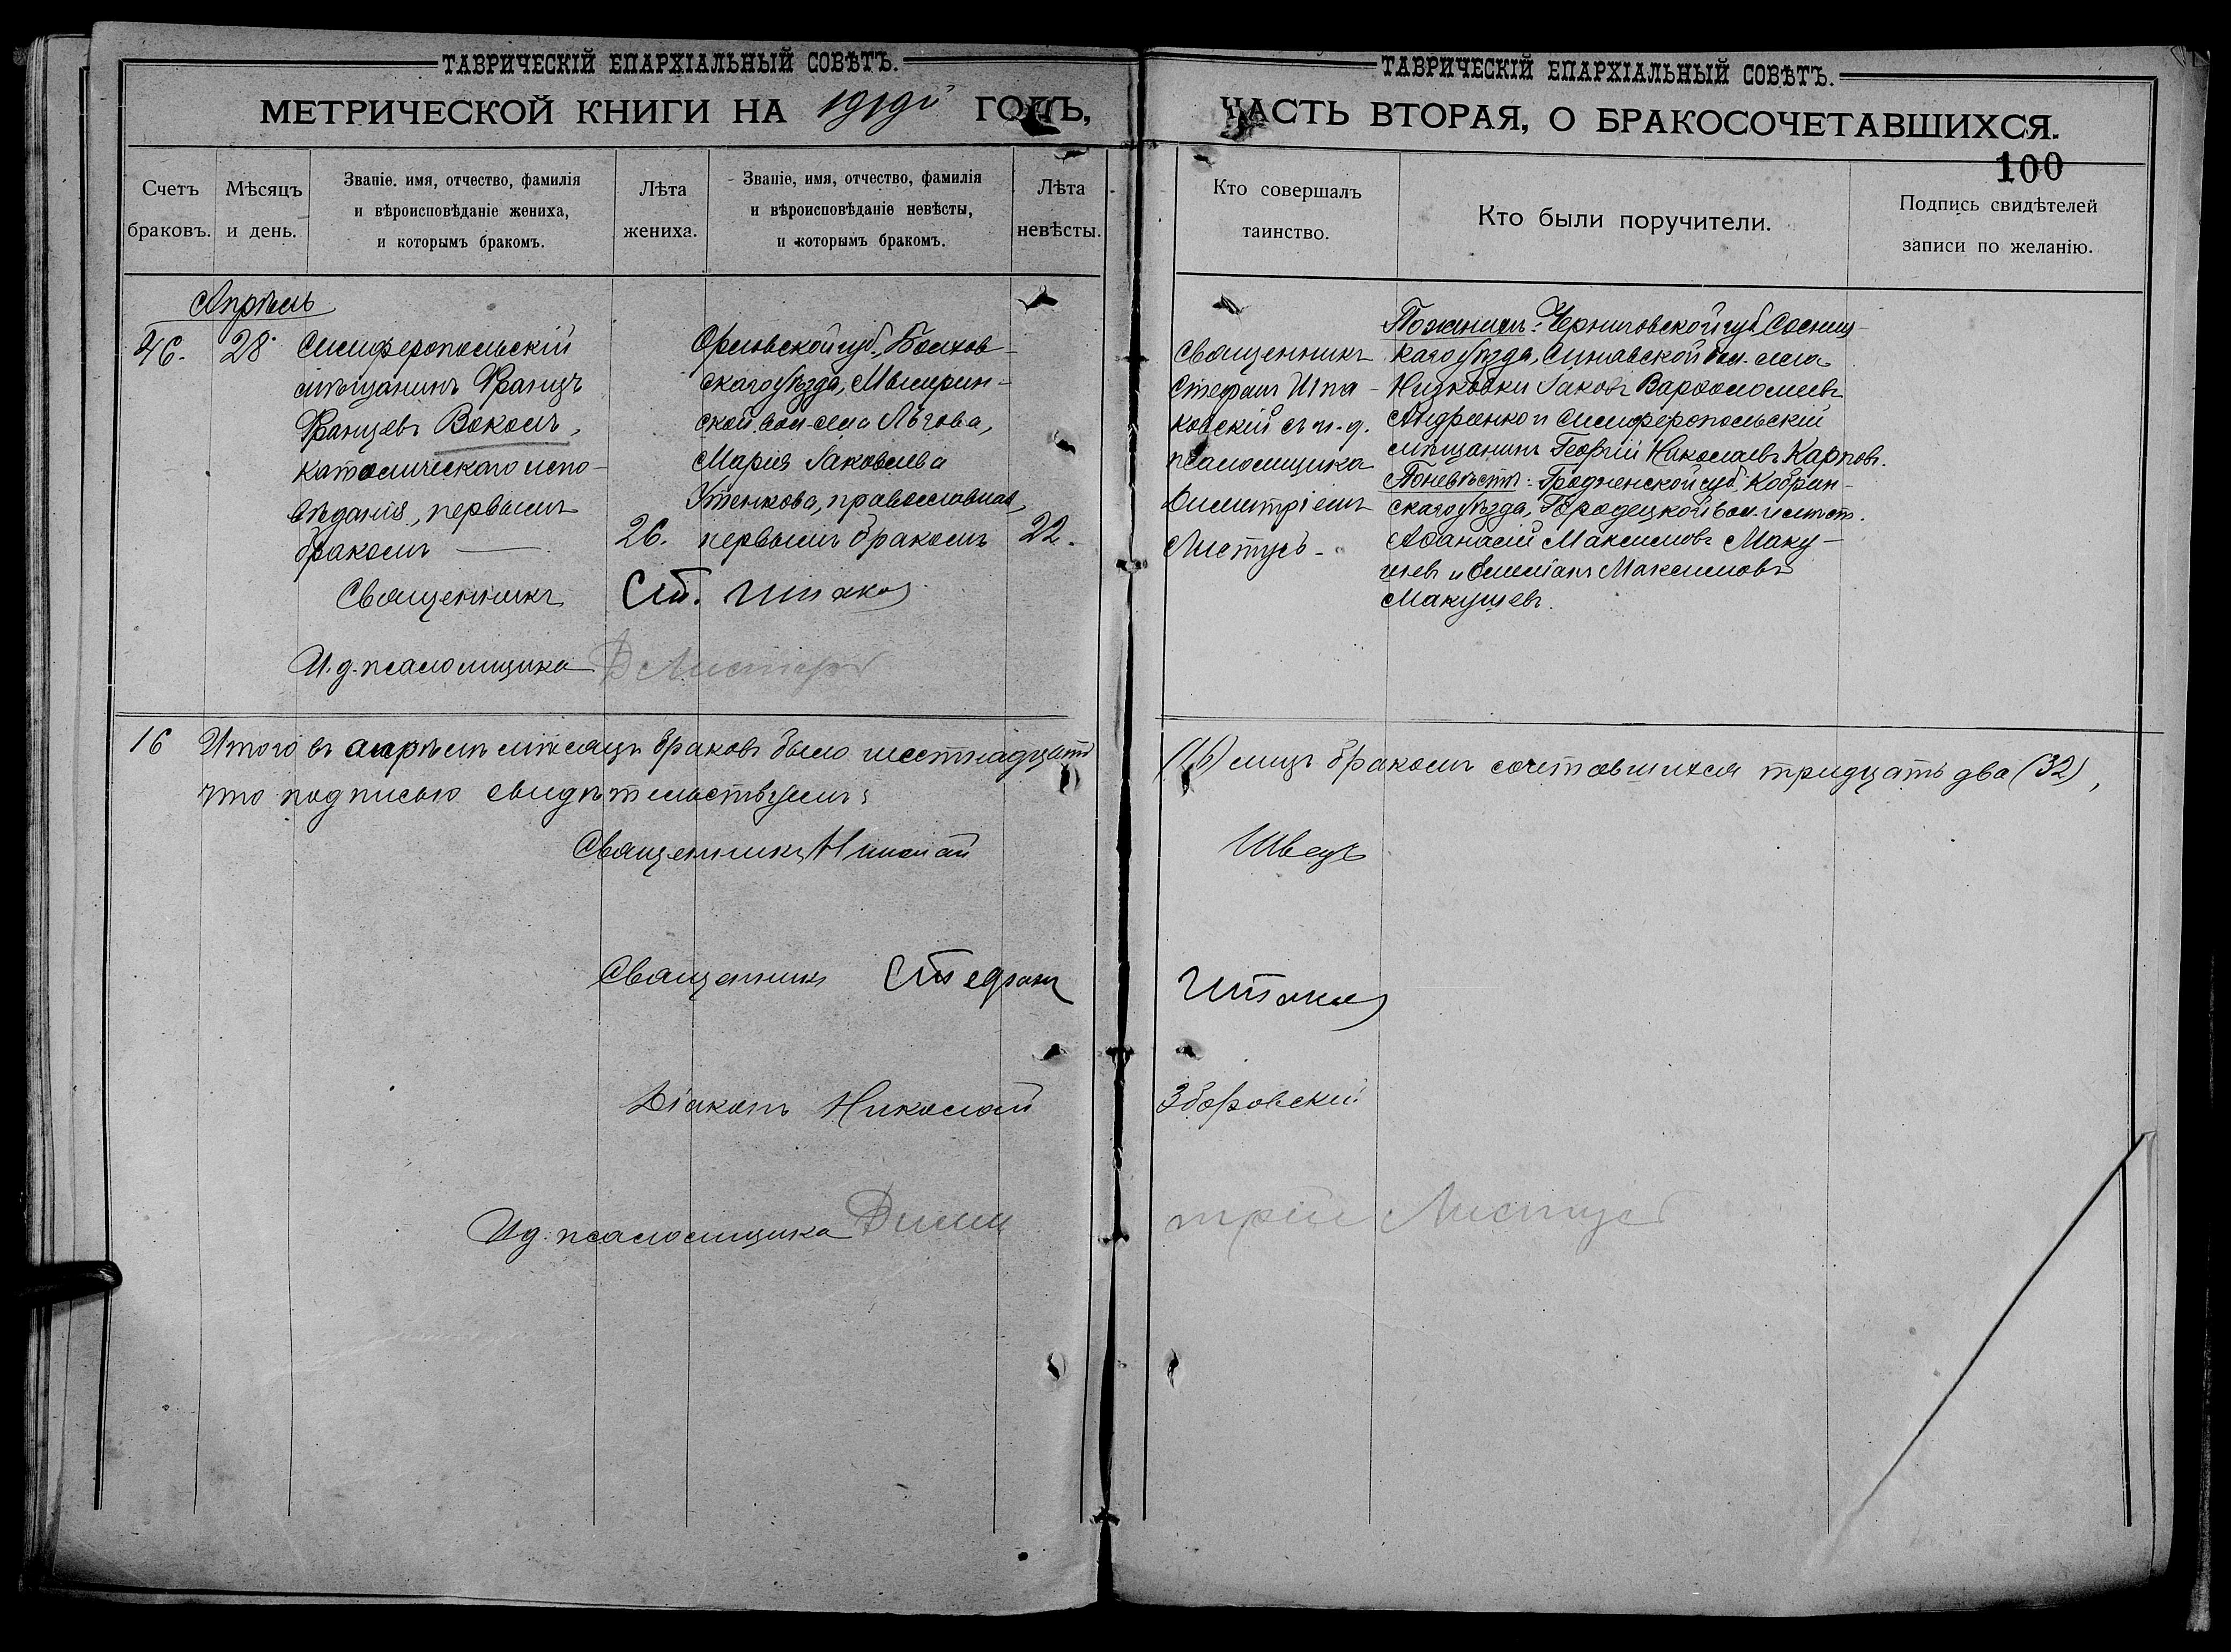 ТАВРИЧЕСКІЙ ЕПАРХІАЛЬНЫЙ СОВѢТЪ.
МЕТРИЧЕСКОЙ КНИГИ НА 1919й ГОДЪ,
Счетъ браковъ.
Мѣсяцъ и день.
Званіе, имя, отчество, фамилія
и вѣроисповѣданіе жениха,
и которымъ бракомъ.
Лѣта
жениха.
Званіе, имя, отчество, фамилія
и вѣроисповѣданіе невѣсты,
и которымъ бракомъ.
Лѣта
невѣсты.
Апрѣль
46.
28
Симферопольскій
мѣщанинъ Францъ
Францевъ Вокомъ,
католическаго испо-
вѣданія, первымъ
бракомъ
26.
Орловской губ. Болхов-
скаго уѣзда,
ской вол. села Льгова,
Марія Іаковлева
Утенкова, православная,
первымъ бракомъ
22.
Священникъ Ст.
И. д. псаломщика Д Листусъ
16 Итого въ апрѣлѣ мѣсяцѣ браковъ было шестнадцать
что подписью свидѣтельствуемъ:
Священникъ Николай
Священникъ Стефанъ
Діаконъ Николай
И д. псаломщика Дими
ТАВРИЧЕСКІЙ ЕПАРХІАЛЬНЫЙ СОВѢТЪ.
ЧАСТЬ ВТОРАЯ, О БРАКОСОЧЕТАВШИХСЯ.
100
Кто совершалъ
таинство.
Кто были поручители.
Подпись свидѣтелей
записи по желанію.
Священникъ
Стефанъ Шпа-
ковскій съ и. д.
псаломщика
Димитріемъ
Листусъ
По женихѣ: Черниговской губ. Сосниц-
каго уѣзда, Синявской вол. села
Низковки Іаковъ Варѳоломеевъ
Андреенко и Симферопольскій
мѣщанинъ Георгій Николаевъ Карповъ.
По невѣстѣ: Гродненской губ. Кобрин-
скаго уѣзда, Городецкой вол. и мѣст.
Аѳанасій Максимовъ Маку-
шевъ и Емиліанъ Максимовъ
Макушевъ.
(16) лицъ бракомъ сочетавшихся тридцать два (32),
Швецъ
Зборовскій
трій Листусъ